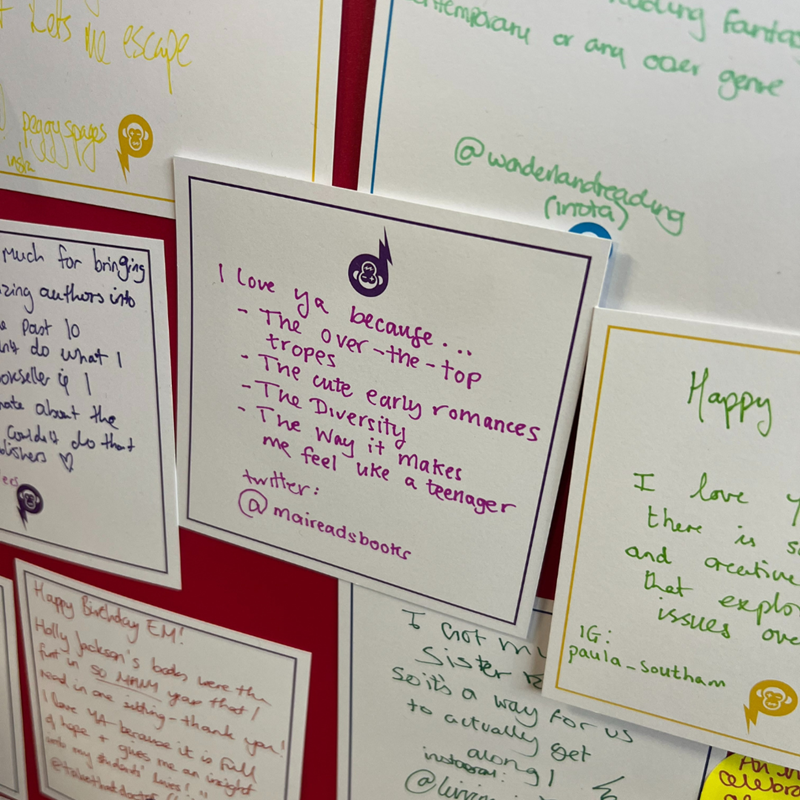 Lets me escape
peggyspages
insta
reading fantasy
contemporary or any other genre
@wonderlandreading
(insta)
much for bringing
authors into
past 10
do what I
bookseller if I
about the
couldn't do that
publishers ♡
I love ya because...
- The over-the-top
tropes
- The cute early romances
- The Diversity
- The way it makes
me feel like a teenager
twitter:
@maireadsbooks
Happy
I love
there is
and creative
that
issues
IG:
paula_southam
Happy Birthday EM!
Holly Jackson's books were the
first in SO MANY year that I
read in one sitting - thank you!
I love YA because it is full
of hope + gives me an insight
into my students' lives!
I got my
sister
so it's a way for us
to actually get
along!
instagram: